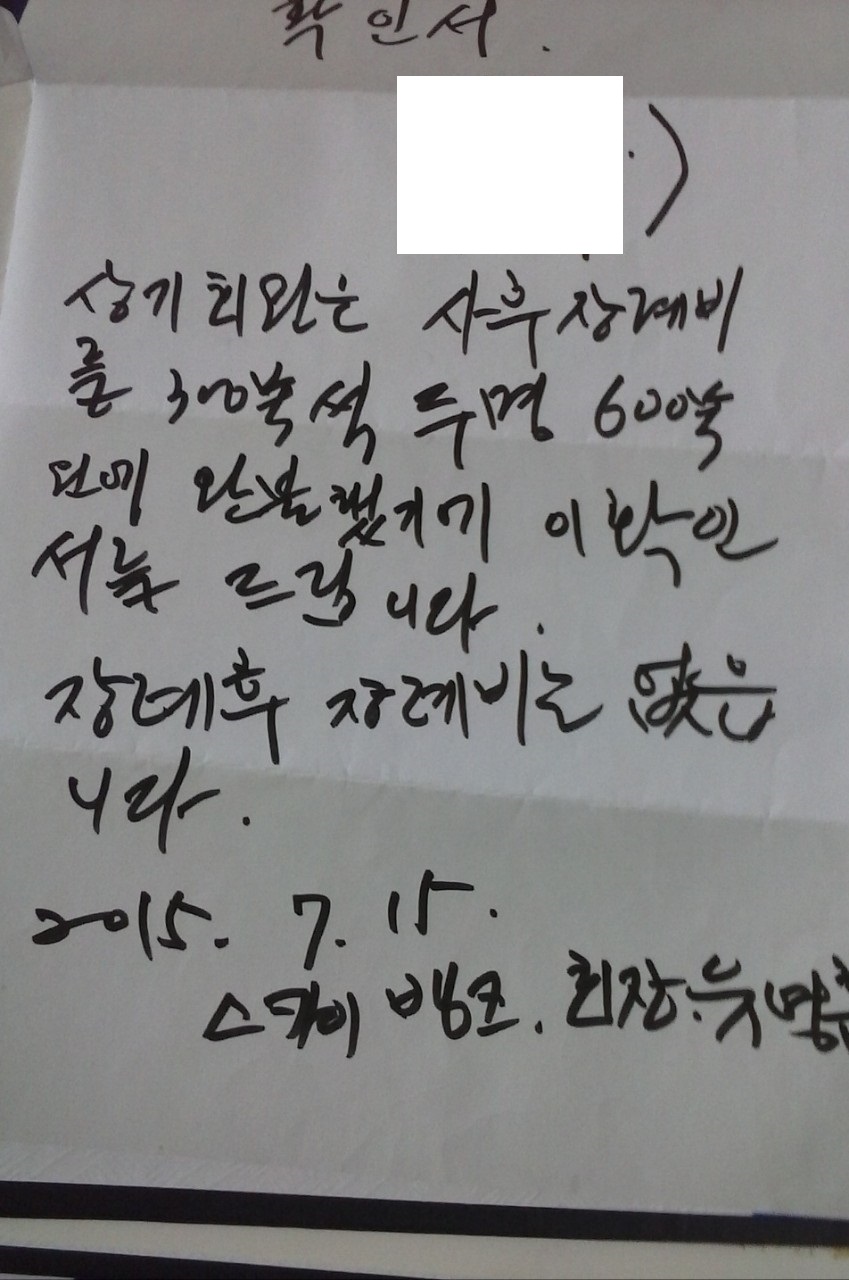 확인서.
)
상기 회원은 사후 장례비
를 300불씩 두명 600불
단에 완불했기에 이 확인
서를 드립니다.
장례후 장례비는 없습
니다.
2015. 7. 15.
스카이 뱅크. 회장: